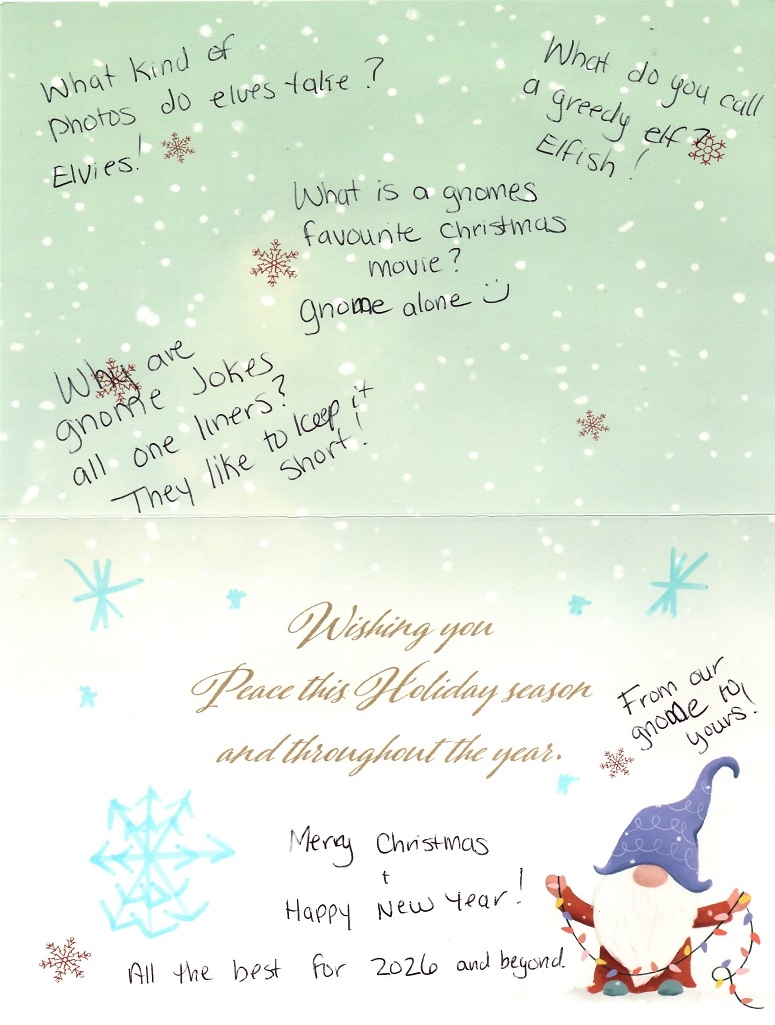 What kind of
photos do elves take?
Elvies!
What do you call
a greedy elf?
Elfish!
What is a gnomes
favourite Christmas
movie?
gnome alone
Why are
gnome Jokes
all one liners?
They like to keep it
short!
Wishing you
Peace this Holiday season
and throughout the year.
From our
gnome to
yours!
Merry Christmas
+
Happy New Year!
All the best for 2026 and beyond.